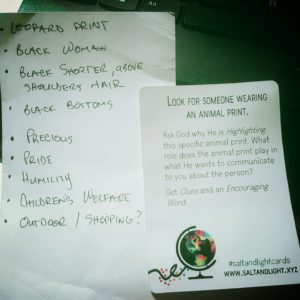 • LEOPARD PRINT
• BLACK WOMAN
• BLACK SHORTER, ABOVE
SHOULDERS HAIR
• BLACK BOTTOMS
• PRECIOUS
• PRIDE
• HUMILITY
• CHILDRENS WELFARE
• OUTDOOR / SHOPPING?
LOOK FOR SOMEONE WEARING
AN ANIMAL PRINT.
Ask God why He is Highlighting
this specific animal print. What
role does the animal print play in
what He wants to communicate
to you about the person?
Get Clues and an Encouraging
Word.
#saltandlightcards
WWW.SALTANDLIGHT.XYZ